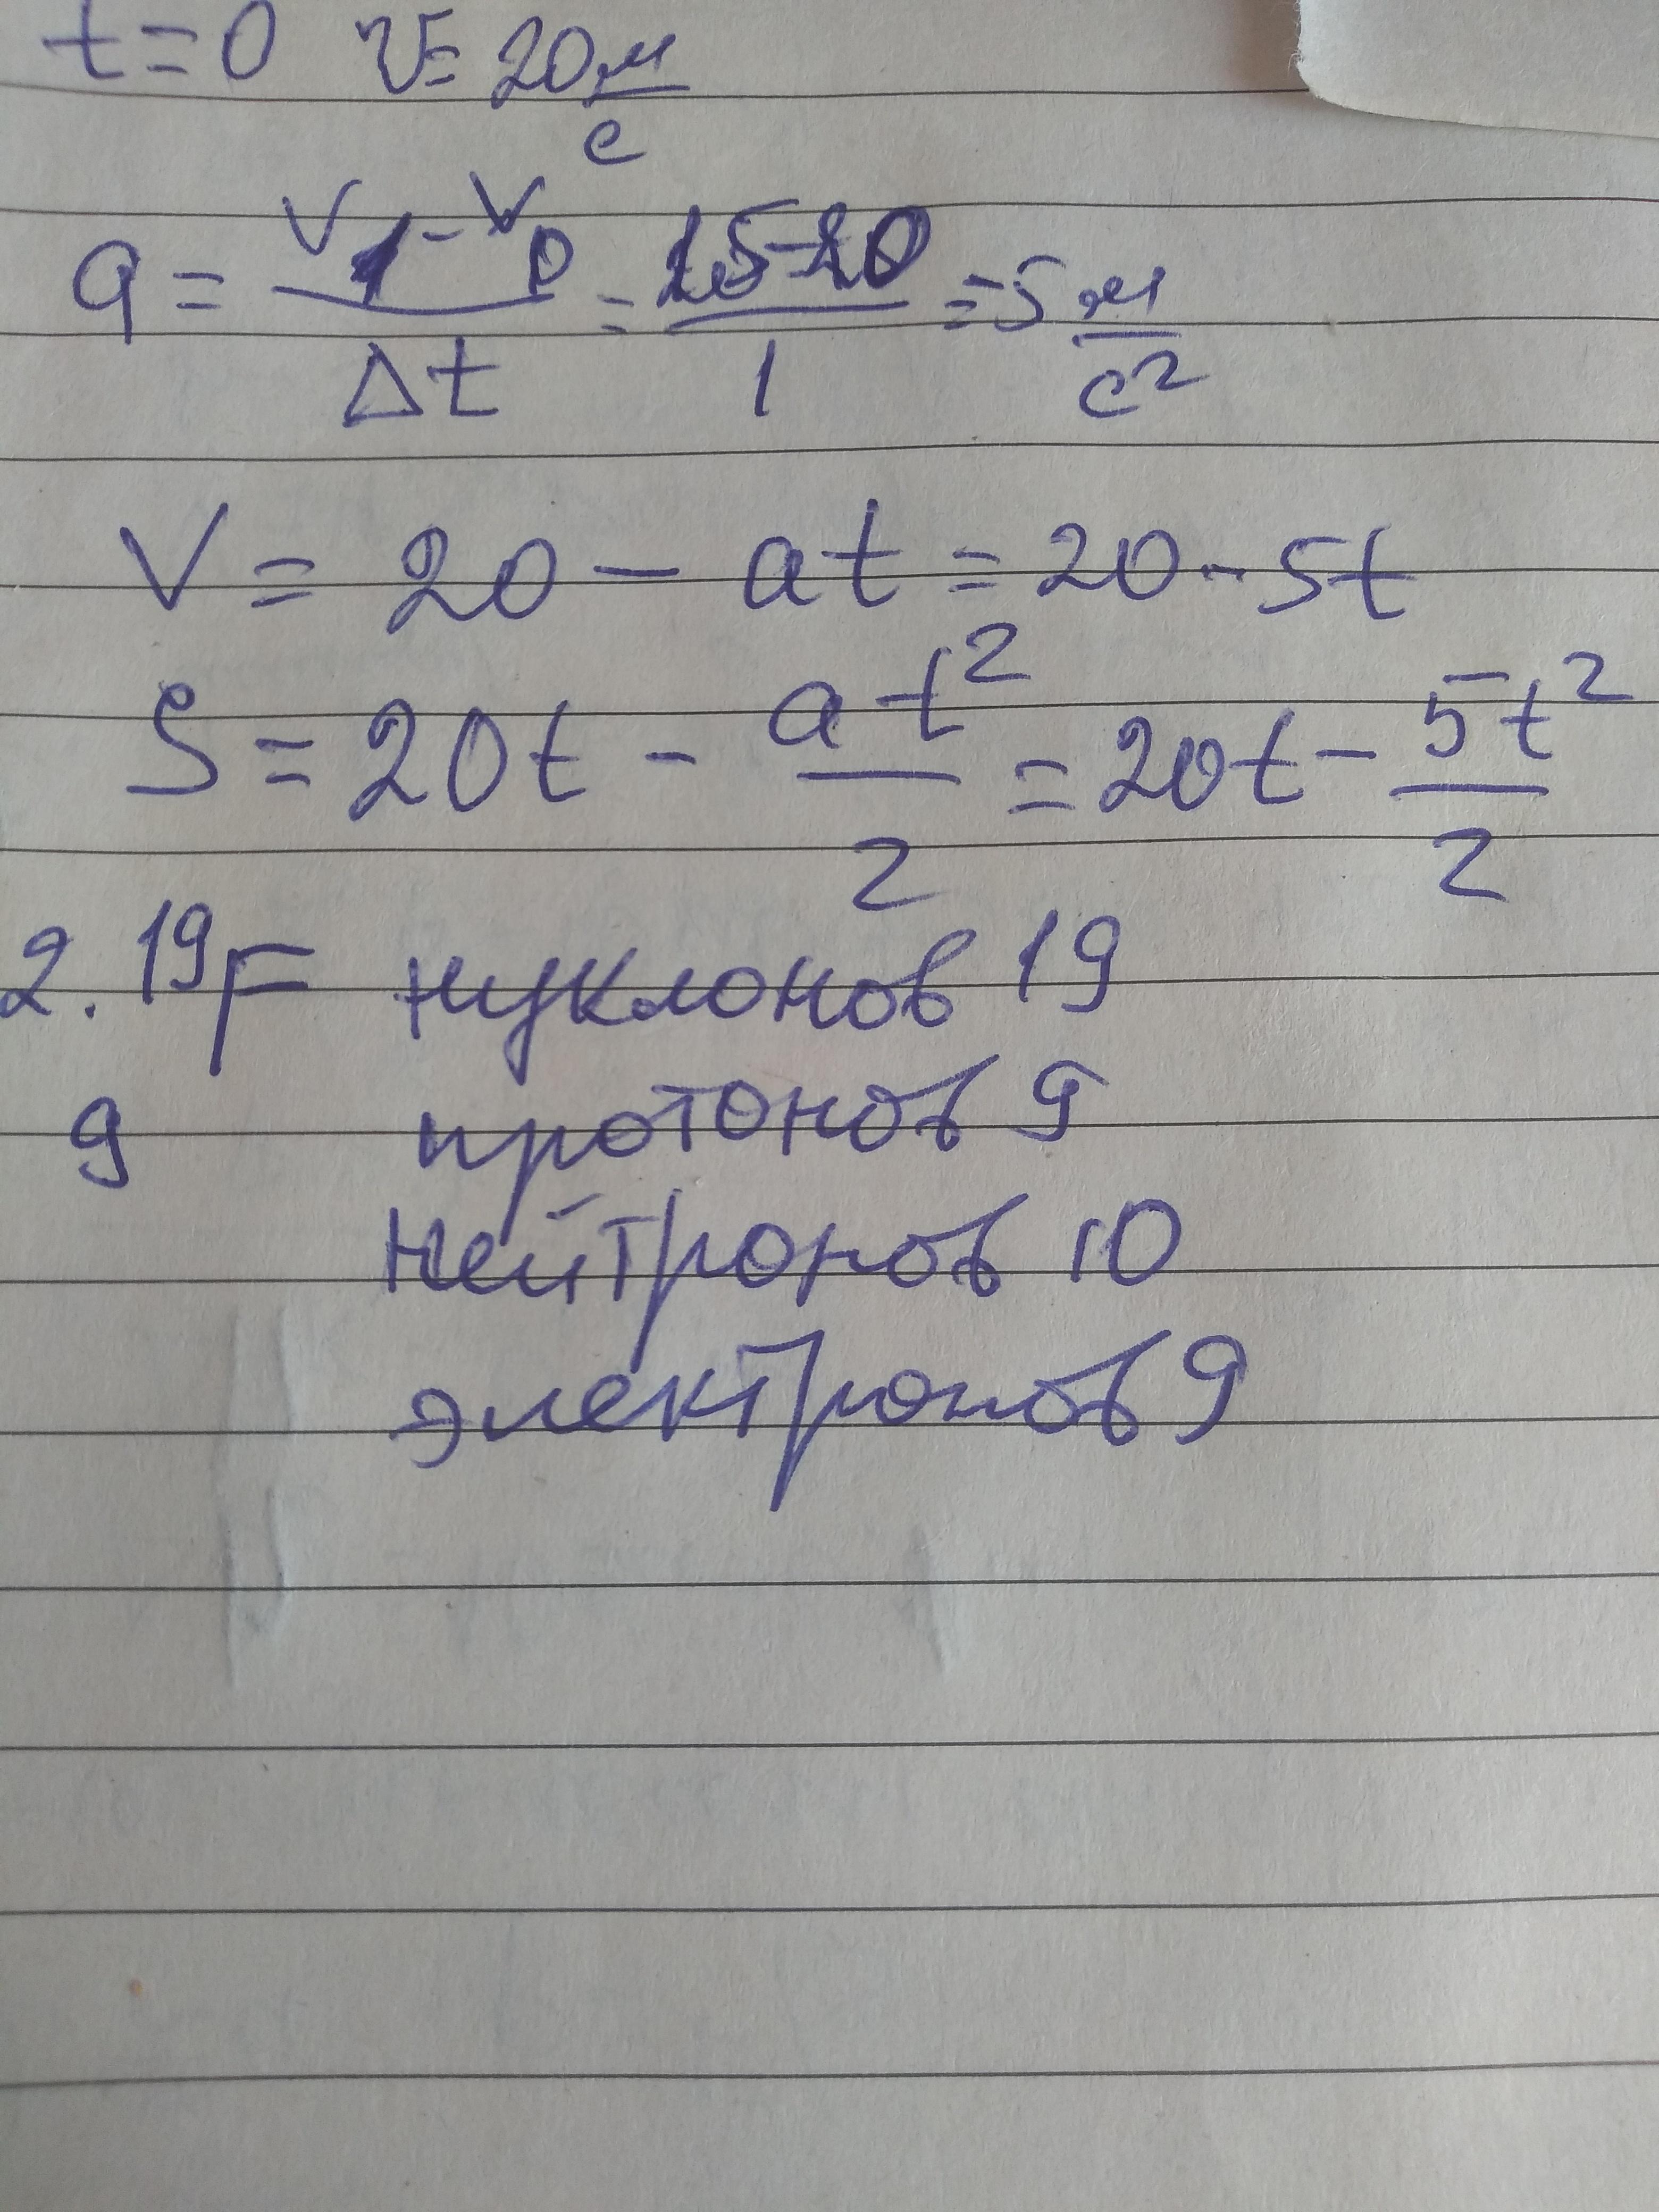 t=0 V= 20 м/с
a = (V1 - V0)/Δt = (15-20)/1 = -5 м/с²
V = 20 - at = 20 - 5t
S = 20t - at²/2 = 20t - 5t²/2
2. 19F нуклонов 19
9 протонов 9
нейтронов 10
электронов 9